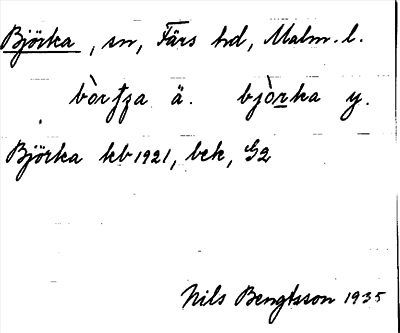 Björka, sn, Färs hd, Malm. l.
bòrꞩa ä. bjòrka y.
Björka kb 1921, bek, G2
Nils Bengtsson 1935